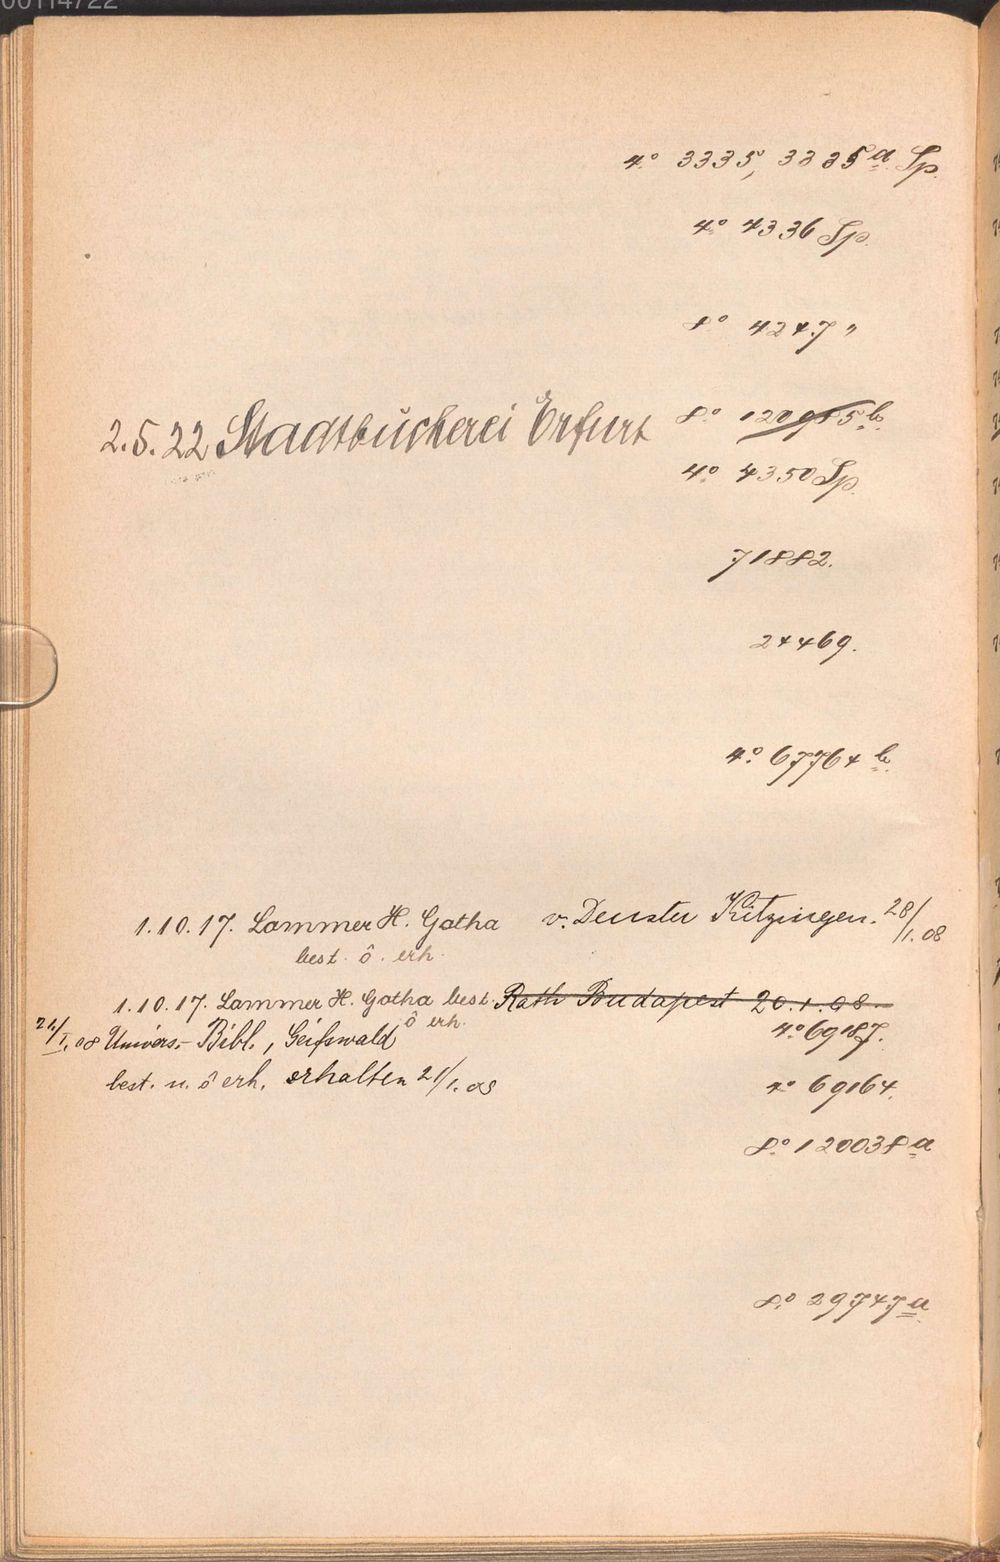 00114722
4° 3335, 3335 a Sp.
4° 4336 Sp.
8° 4247 "
2.5.22 Stadtbücherei Erfurt 8° 120985 b.
4° 4350 Sp.
71882.
24469.
4° 67764 b.
1.10.17. Lammer H. Gotha v. Deuster Kitzingen. 28/1.08
best. ô. erh.
1.10.17. Lammer H. Gotha best. Rath Budapest 20.1.08.
ô erh.
21/I.08 Univers.- Bibl., Greifswald 4° 69187.
best. u. ô erh. erhalten 21/1.08 4° 69164.
8° 120038 a
8° 29747 a.